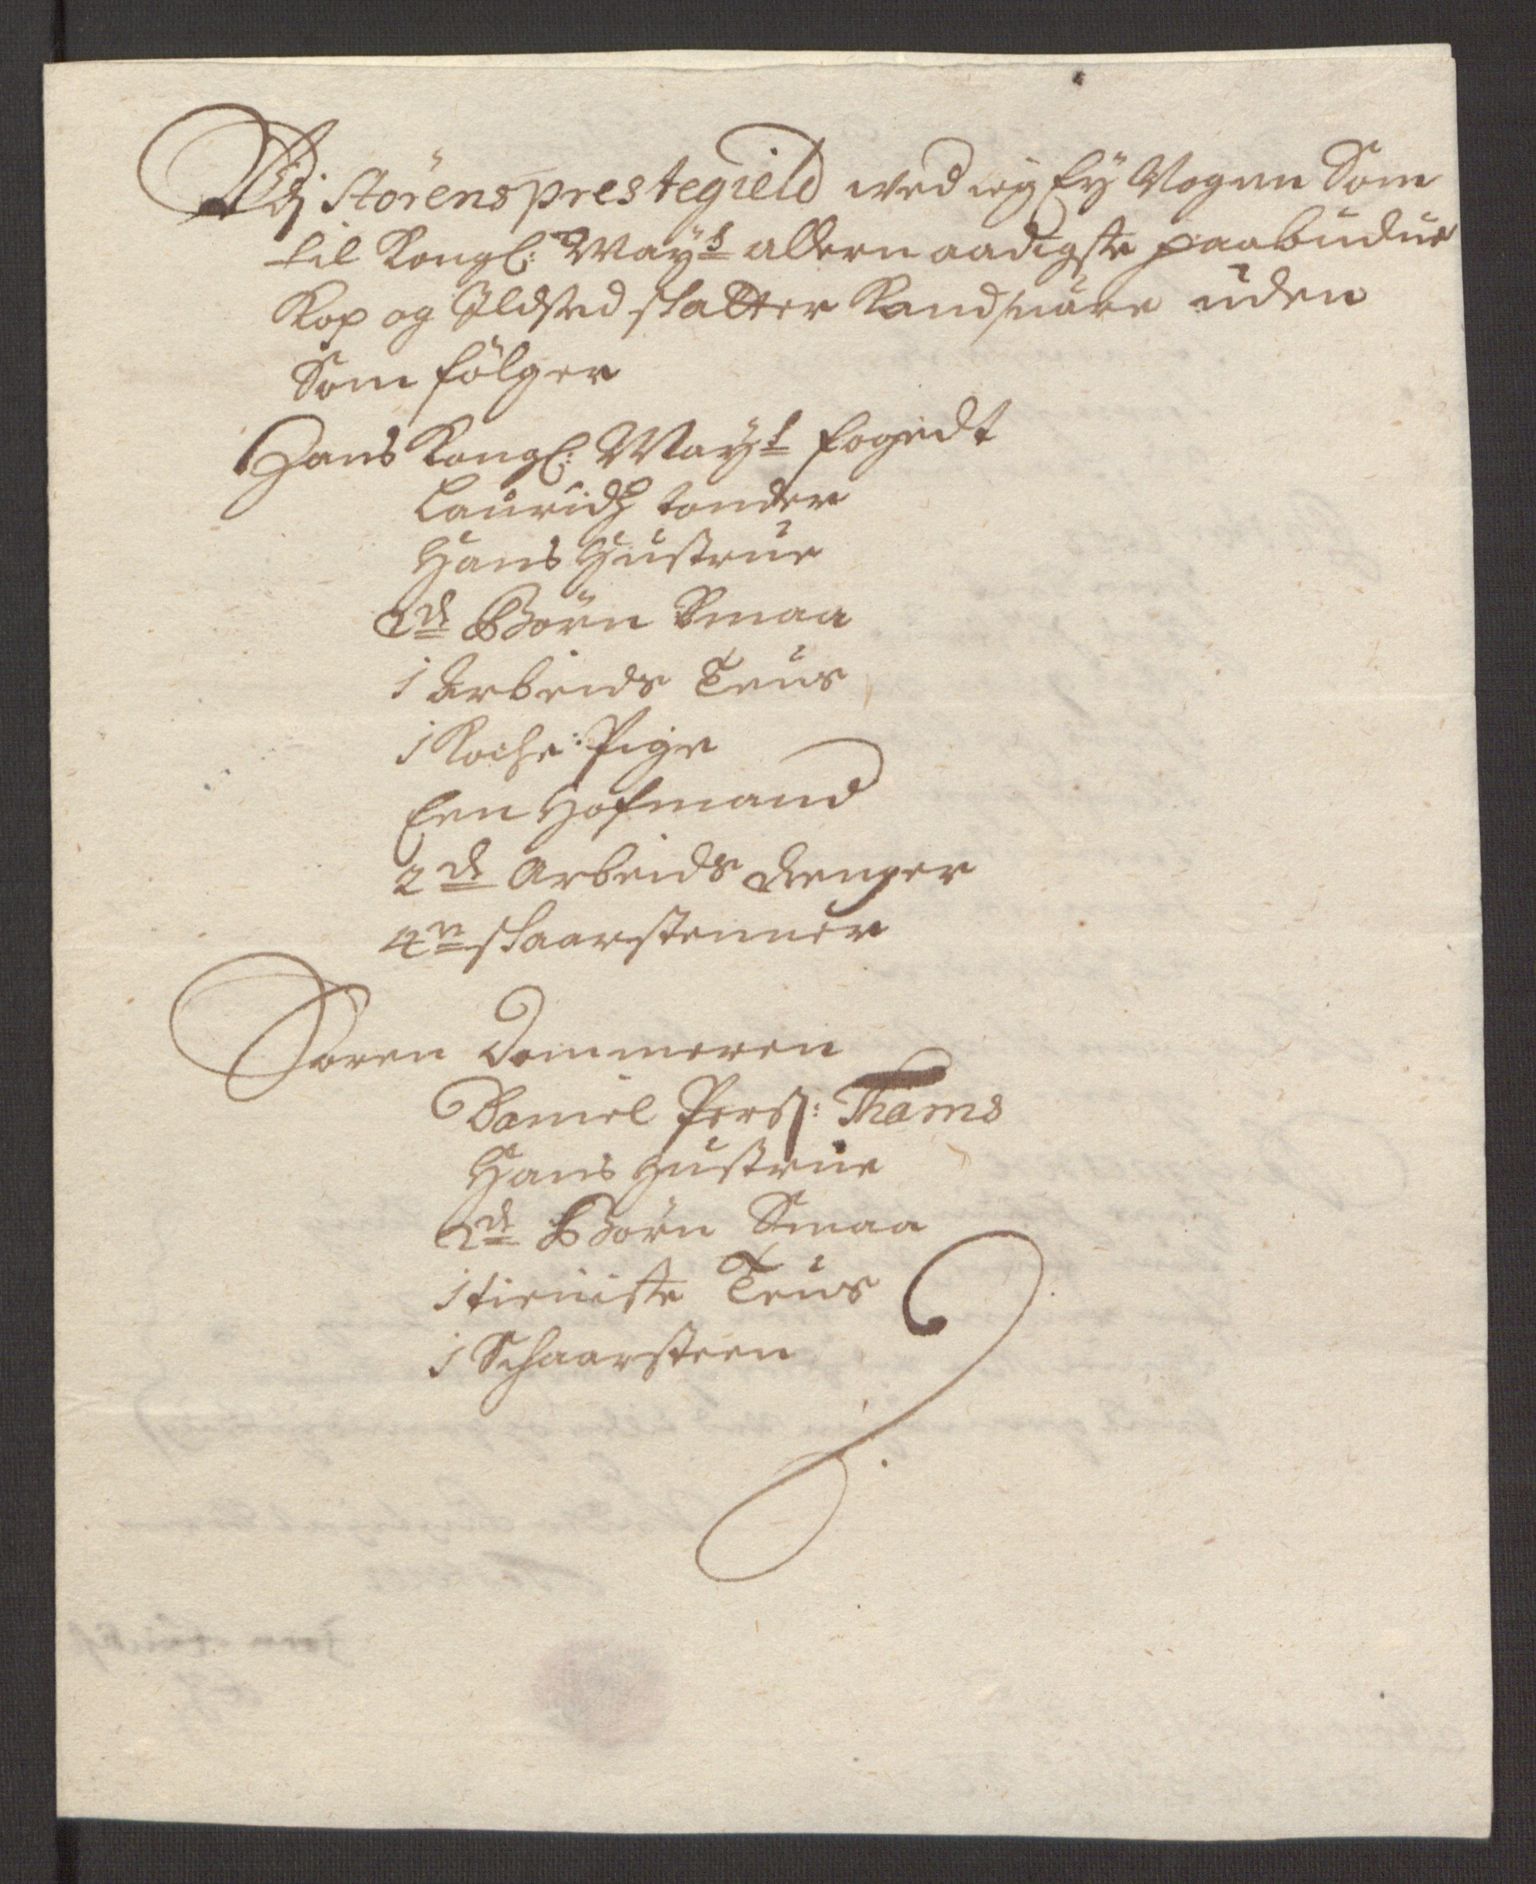 Udj Störens prestegield wed ieg Ey Nogen Som
til Kongl: Maÿts allernaadigste paabudne
Kop og Ildsted skatter Kand suare uden
Som fölger
Hans Kongl: Maÿts fogedt
Lauridtz tonder
Hans Hustrue
2de Börn Smaa
1 Arbeids Teus
1 Koche: Pige
Een Hofmand
2de Arbeids drenger
4re skaarstenner
Soren
Daniel Perss: Thams
Hans Hustrue
2de Börn Smaa
1 tieniste Teus
1 Schaarsteen